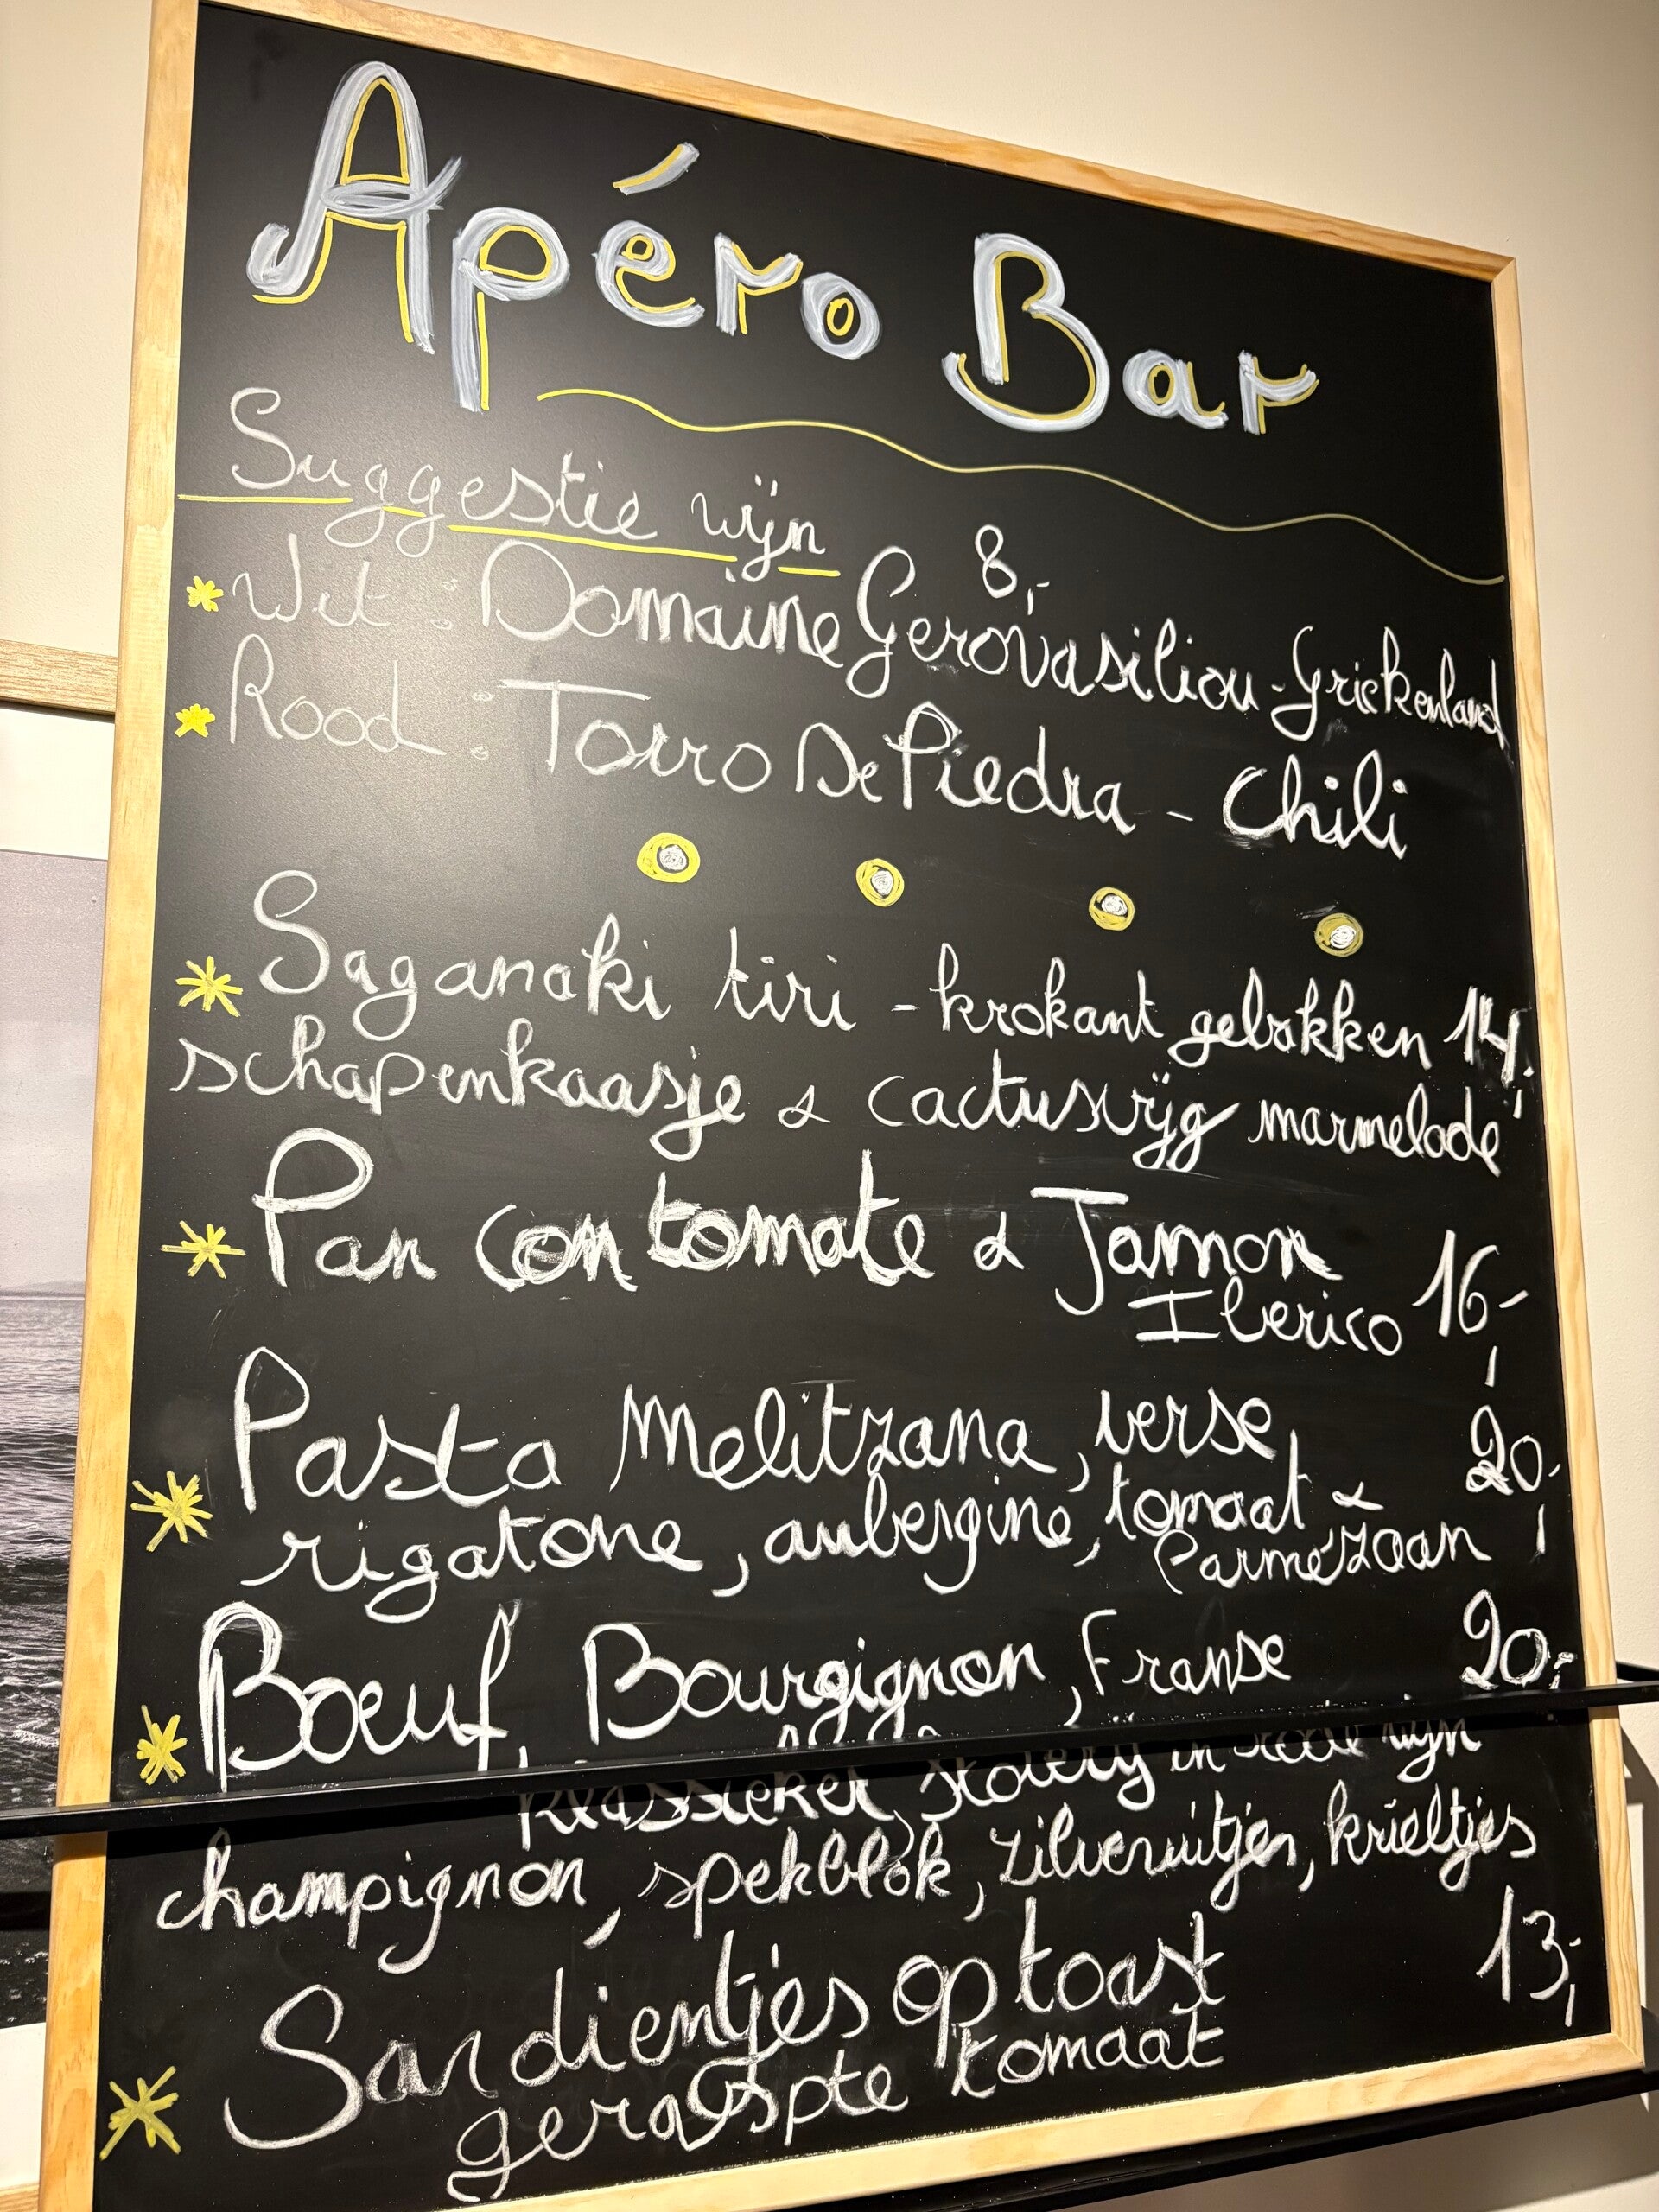 Apéro Bar
Suggestie wijn 8,-
Wit : Domaine Gerovasiliou - Griekenland
Rood : Torro De Piedra - Chili
Saganaki tiri - krokant gebakken 14,-
schapenkaasje & cactusvijg marmelade
Pan con tomate & Jamon
Iberico 16,-
Pasta Melitzana, verse 20,-
rigatone, aubergine, tomaat &
Parmézaan
Boeuf Bourgignon, Franse 20,-
klassieker, stoverij in rode wijn
champignon, spekblok, zilveruitjes, krieltjes
Sardientjes op toast 13,-
geraspte tomaat